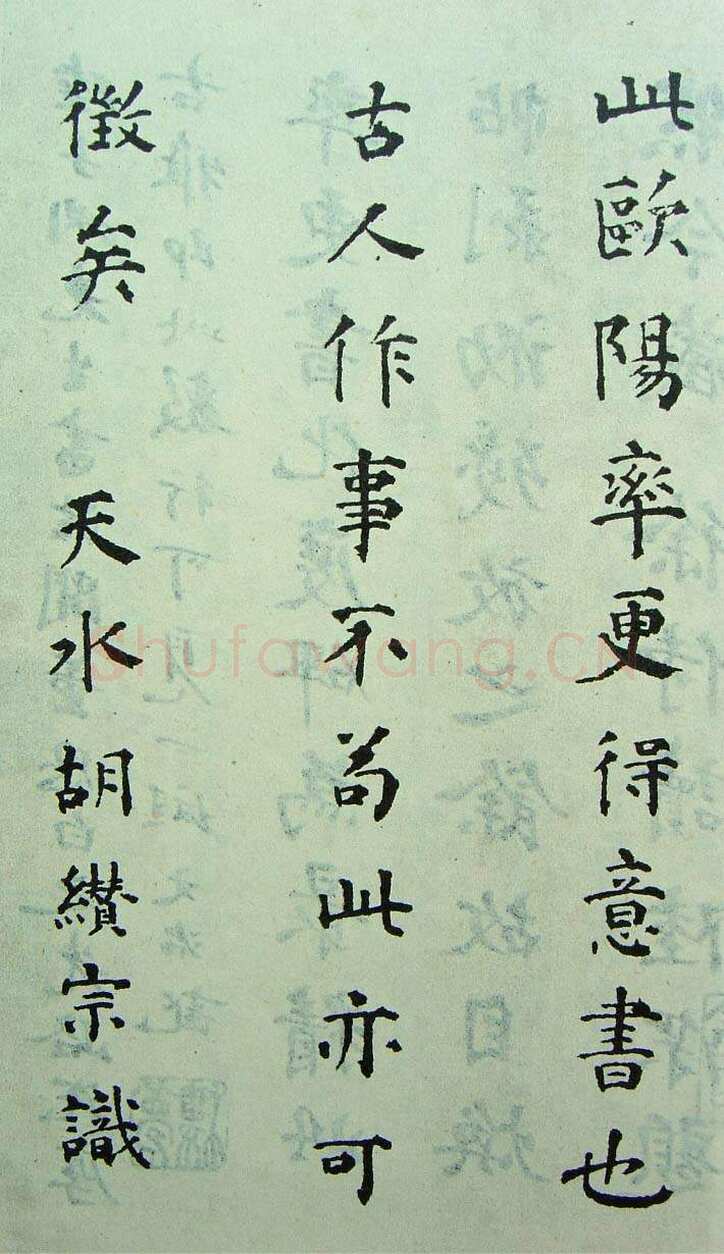 此歐陽率更得意書也
古人作事不苟此亦可
徵矣 天水胡纘宗識
Shufawang.CN